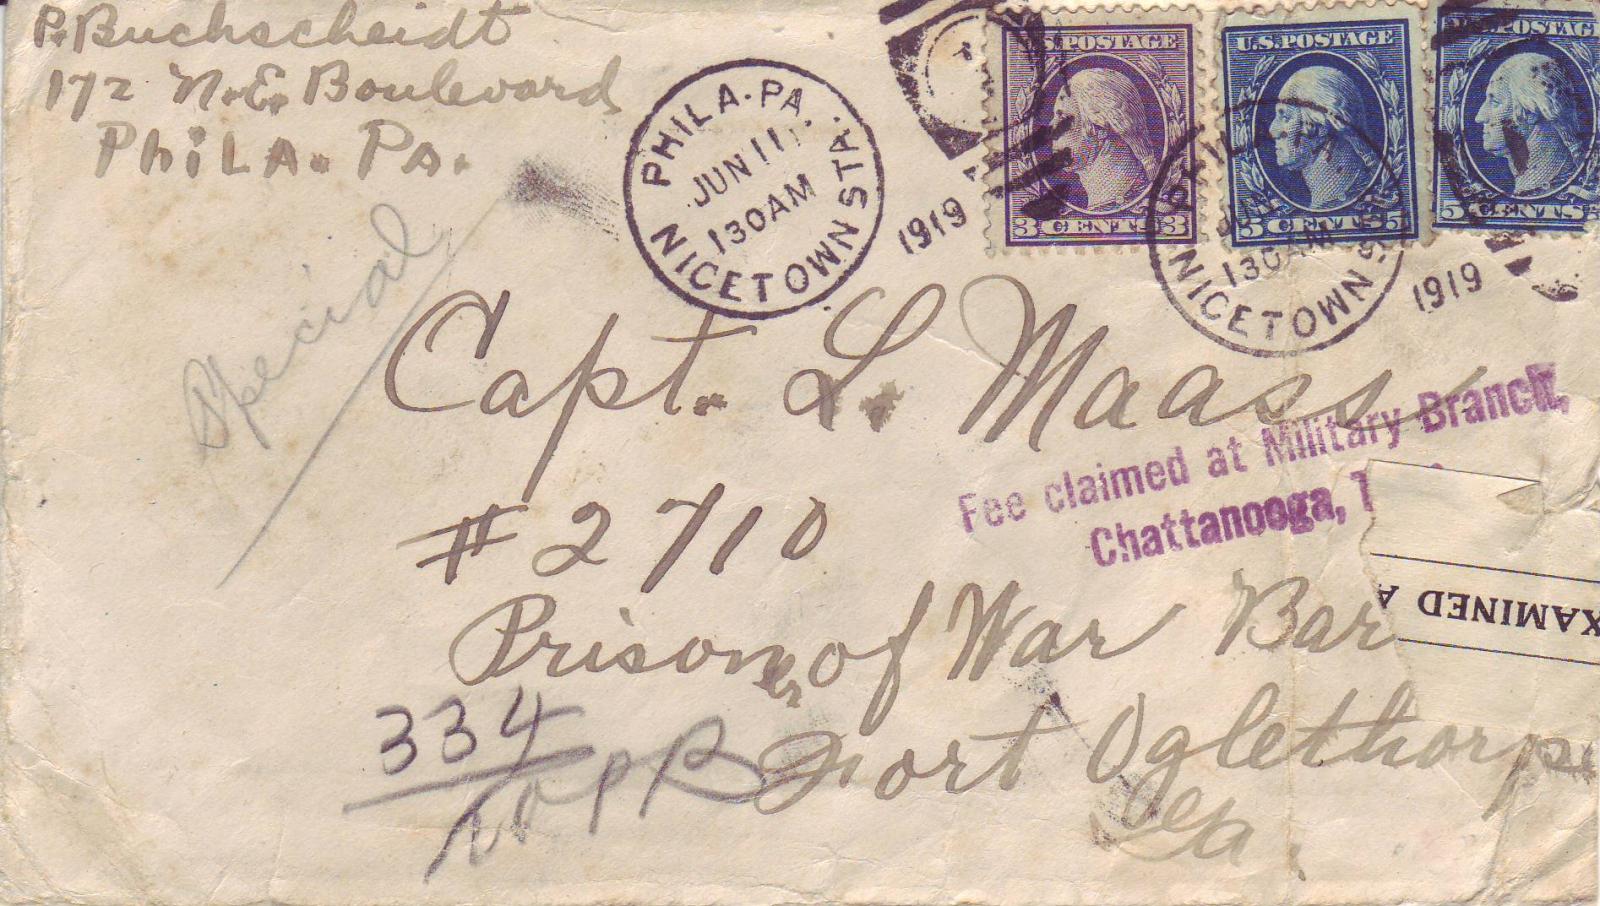 P. Buchscheidt
172 N.E. Boulevard
Phila. Pa.
Special
PHILA. PA.
JUN 11
130AM
NICETOWN STA.
1919
U.S. POSTAGE
3 CENTS 3
U.S. POSTAGE
5 CENTS 5
U.S. POSTAG
5 CENTS 5
PHILA. PA.
JUN
130AM
NICETOWN S
1919
Capt. L. Maass
# 2710
Prisoner of War Bar
Fort Oglethorpe
Ga.
Fee claimed at Military Branch,
Chattanooga, T
XAMINED A
334